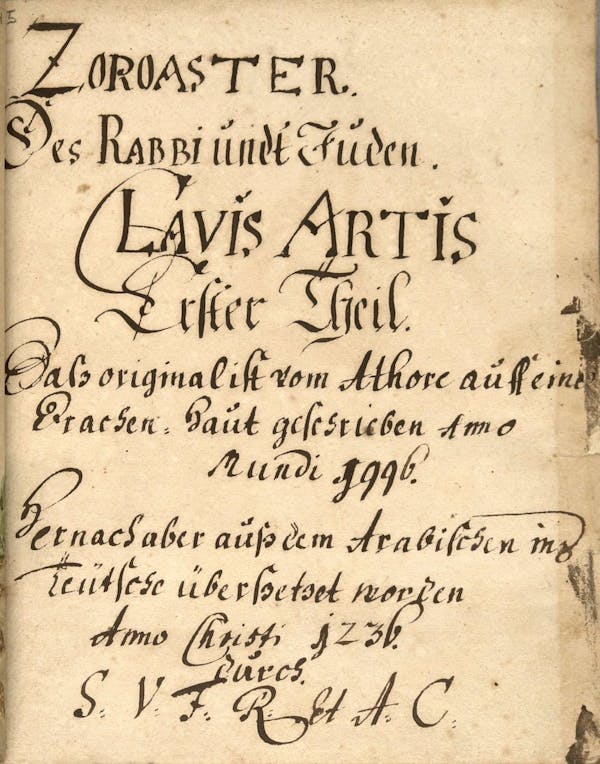 ZOROASTER.
Des RABBI undt Juden.
CLAVIS ARTIS
Erster Theil.
Daß original ist vom Athore auff eine
Drachen= haut geschrieben Anno
Mundi 1996.
Hernach aber auß dem Arabischen ins
Teütsche übersetzet worden
Anno Christi 1236.
durch.
S. V. F. R. Et A. C.